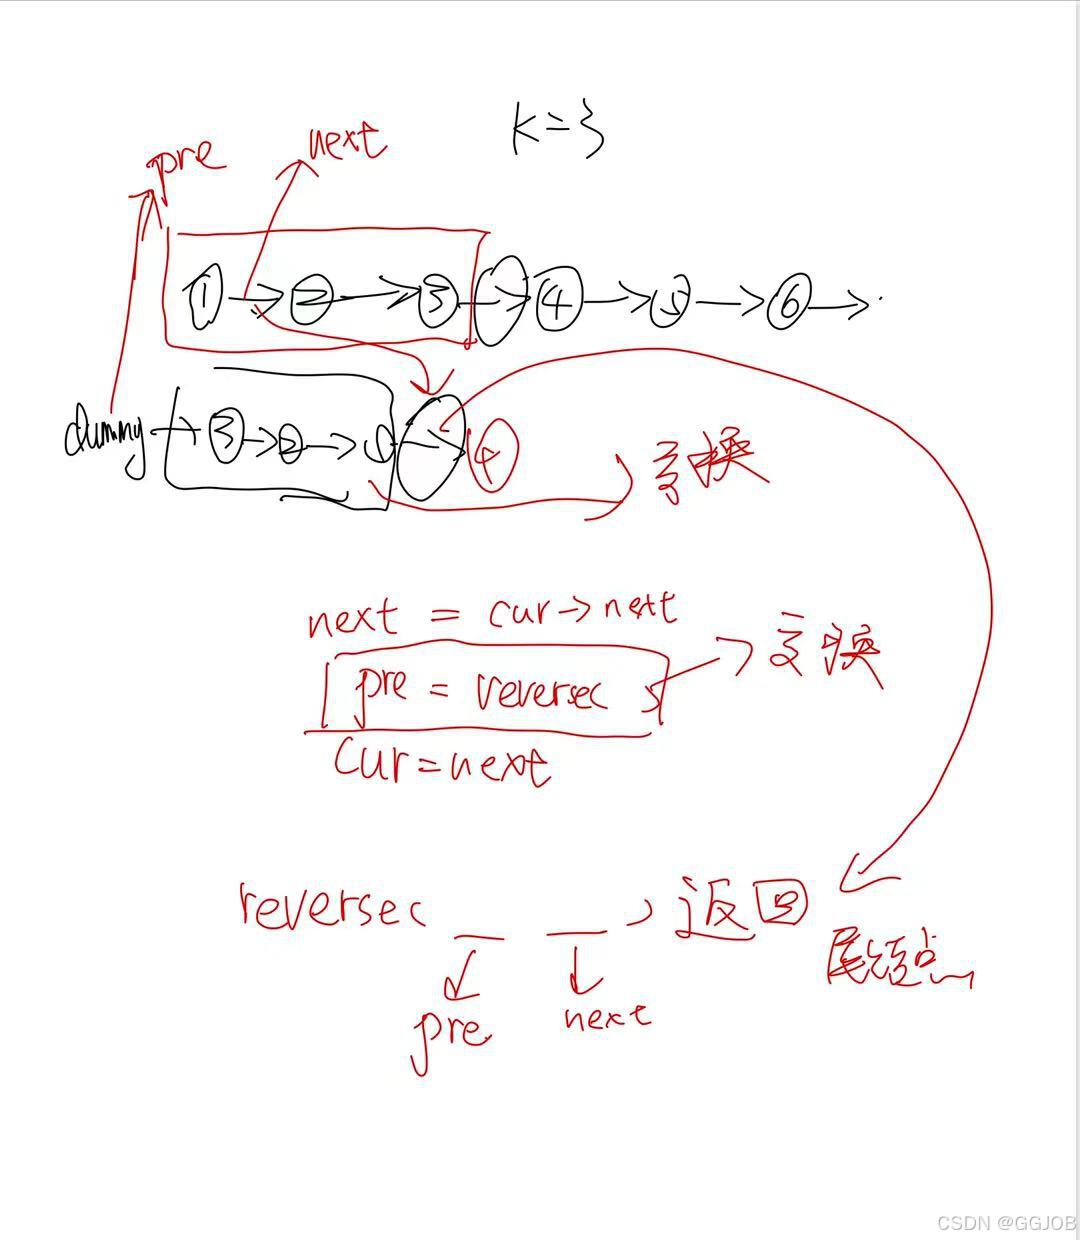 k=3
pre next
① → ② → ③ → ④ → ⑤ → ⑥ →
dummy → ③ → ② → ① → ④
交换
next = cur→next
pre = reversec
交换
cur=next
reversec __ __ 返回
尾结点
pre next
CSDN @GGJOB